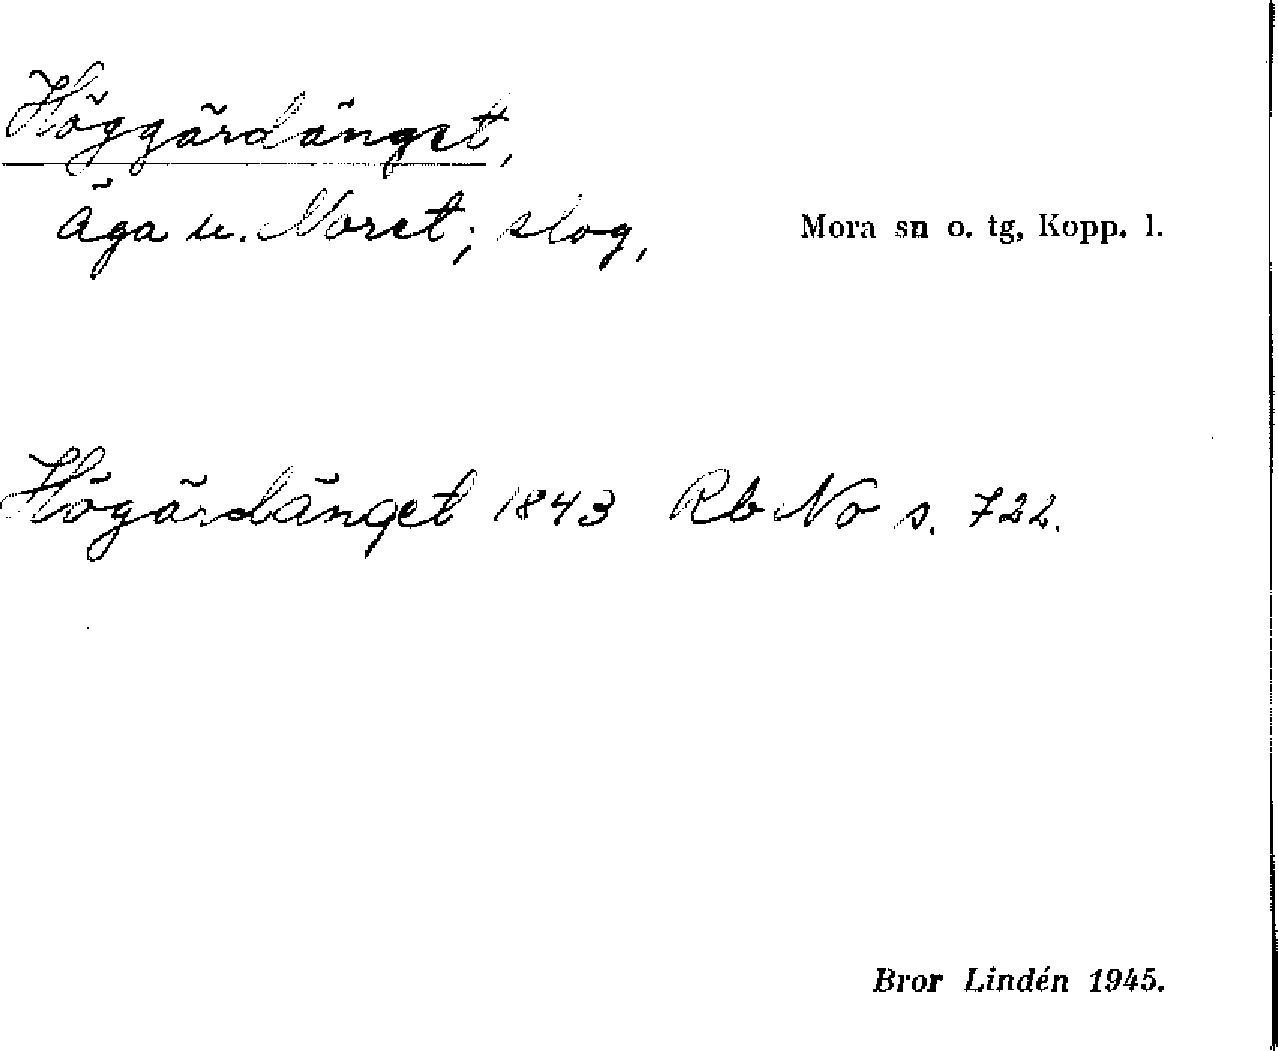 Höggärdänget,
äga u. Noret; slog,
Mora sn o. tg, Kopp. l.
Högärdänget 1843 Rb No s. 722.
Bror Lindén 1945.